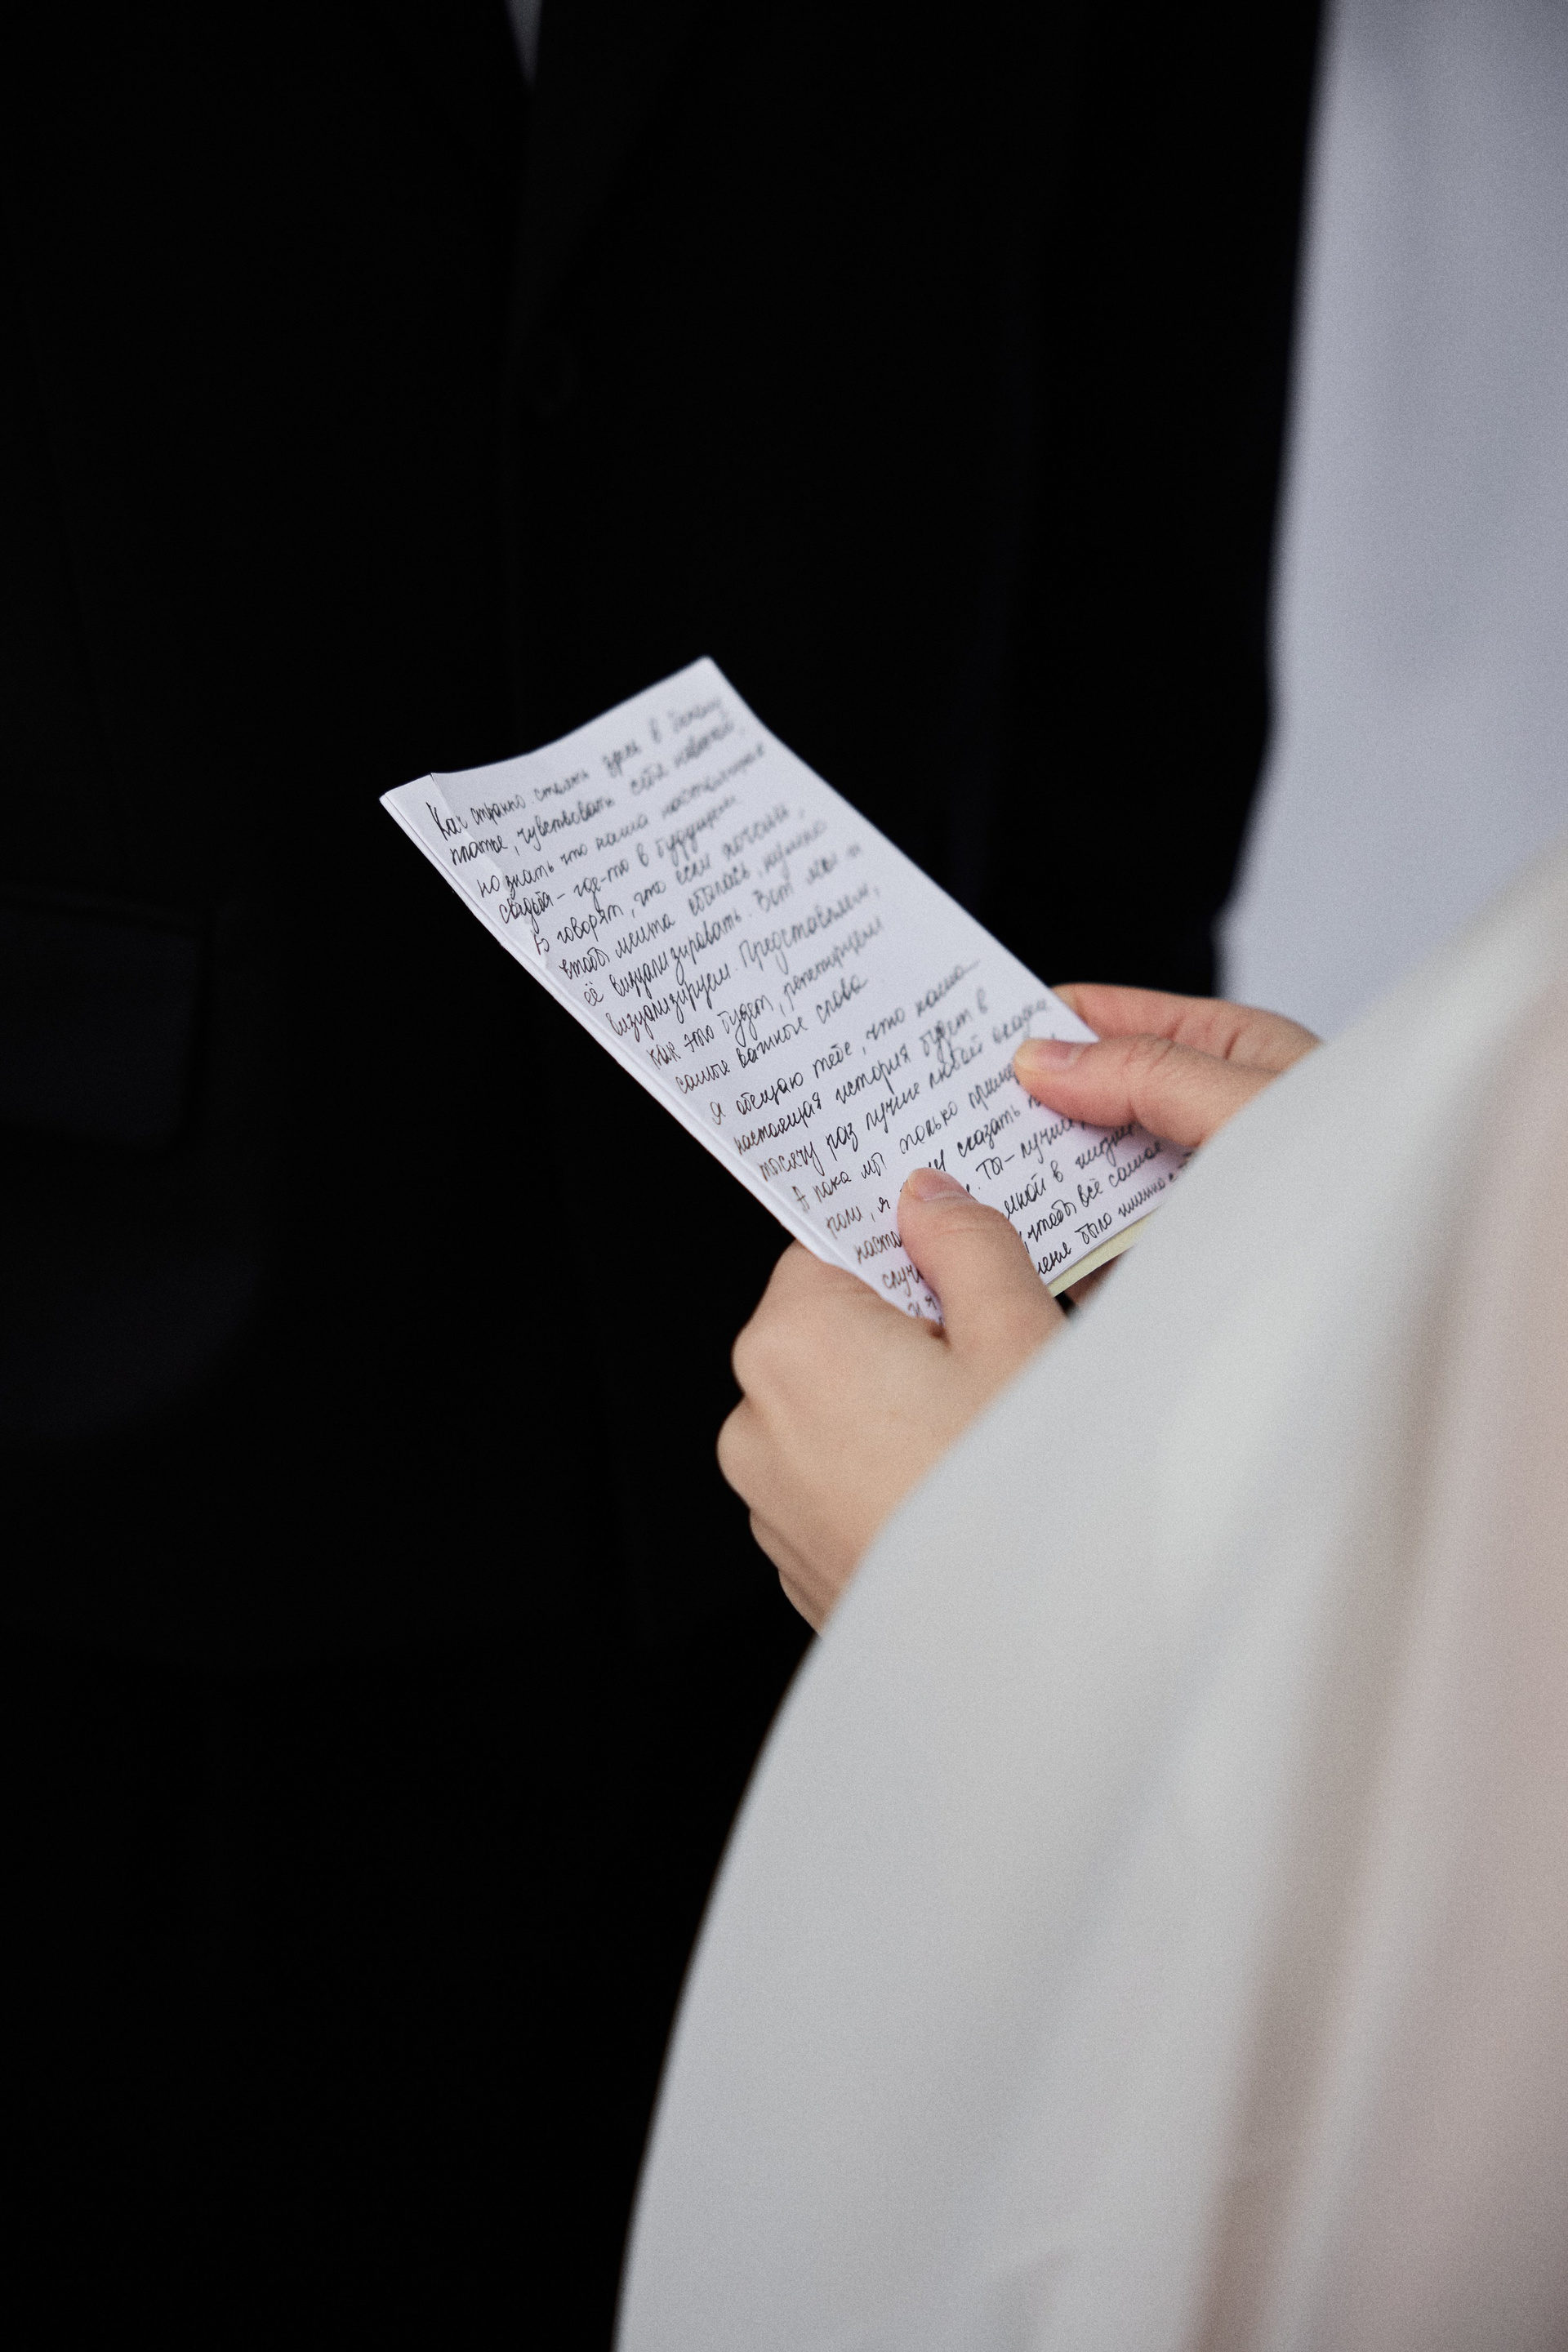 Как странно стоять здесь в белом
платье, чувствовать себя невестой,
но знать что наша настоящая
свадьба – где-то в будущем
Но говорят, что если хочешь,
чтобы мечта сбылась, нужно
её визуализировать. Вот мы и
визуализируем. Представляем,
как это будет, репетируем
самые важные слова
Я обещаю тебе, что наша
настоящая история будет в
тысячу раз лучше любой
А пока мы только
роли, я сказать
Ты – лучшее,
мной в жизни
случ чтобы всё самое
И я было именно с